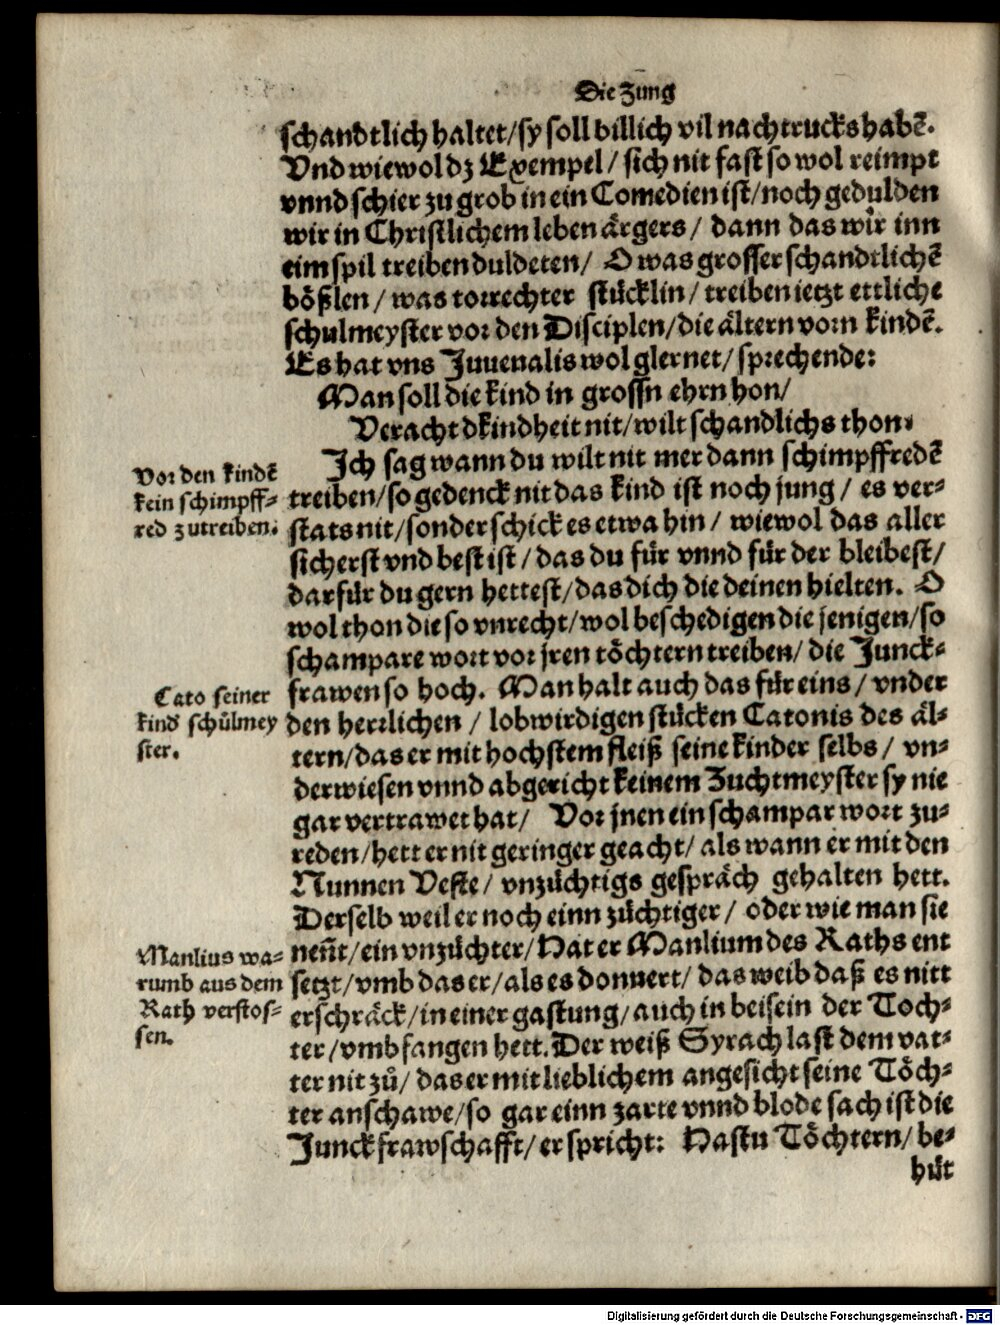 Die Zung
schandtlich haltet/sy soll billich vil nachtrucks habē.
Vnd wiewol dz Exempel/ sich nit fast so wol reimpt
vnnd schier zu grob in ein Comedien ist/noch gedulden
wir in Christlichem leben ärgers/ dann das wir inn
eim spil treiben duldeten/ O was grosser schandtlichē
bößlen/was torrechter stücklin/treiben ietzt ettliche
schulmeyster vor den Disciplen/die ältern vorn kindē.
Es hat vns Juuenalis wol glernet/sprechende:
Man soll die kind in grossn ehrn hon/
Veracht dkindheit nit/wilt schandlichs thon.
Vor den kindē
kein schimpff-
red zutreiben.
Ich sag wann du wilt nit mer dann schimpffredē
treiben/so gedenck nit das kind ist noch jung/ es ver-
stats nit/sonder schick es etwa hin/ wiewol das aller
sicherst vnd best ist/das du für vnnd für der bleibest/
darfür du gern hettest/das dich die deinen hielten. O
wol thon die so vnrecht/wol beschedigen die jenigen/so
schampare wort vor jren töchtern treiben/ die Junck-
Cato seiner
kind schůlmey
ster.
frawen so hoch. Man halt auch das für eins/ vnder
den herrlichen/ lobwirdigen stücken Catonis des äl-
tern/das er mit hochstem fleiß seine kinder selbs/ vn-
derwiesen vnnd abgericht keinem Zuchtmeyster sy nie
gar vertrawet hat/ Vor jnen ein schampar wort zu-
reden/hett er nit geringer geacht/als wann er mit den
Nunnen Veste/ vnzüchtigs gespräch gehalten hett.
Derselb weil er noch einn züchtiger/ oder wie man sie
Manlius wa-
rumb aus dem
Rath verstos-
sen.
neñt/ein vnzüchter/Hat er Manlium des Raths ent
setzt/vmb das er/als es donnert/das weib daß es nitt
erschräck/in einer gastung/auch in beisein der Toch-
ter/vmbfangen hett. Der weiß Syrach last dem vat-
ter nit zů/ das er mit lieblichem angesicht seine Töch-
ter anschawe/so gar einn zarte vnnd blode sach ist die
Junckfrawschafft/er spricht: Hastu Töchtern/be-
hüt
Digitalisierung gefördert durch die Deutsche Forschungsgemeinschaft - DFG